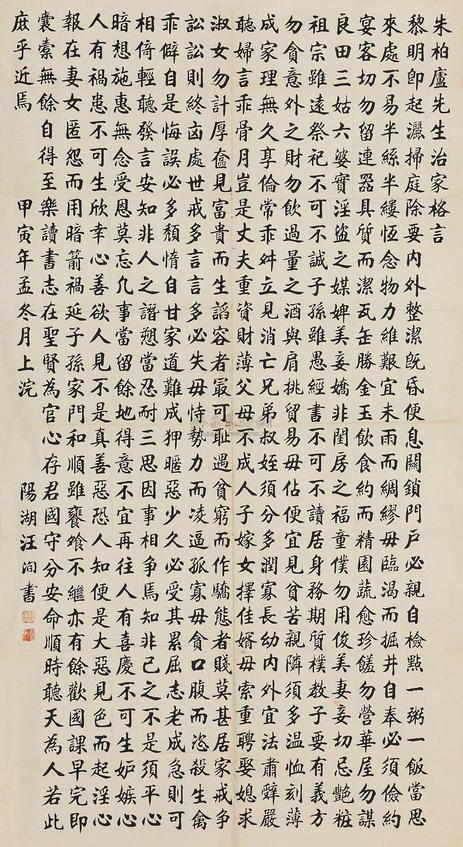 朱柏廬先生治家格言
黎明即起灑掃庭除要內外整潔既昏便息關鎖門戶必親自檢點一粥一飯當思
來處不易半絲半縷恆念物力維艱宜未雨而綢繆毋臨渴而掘井自奉必須儉約
宴客切勿留連器具質而潔瓦缶勝金玉飲食約而精園蔬愈珍饈勿營華屋勿謀
良田三姑六婆實淫盜之媒婢美妾嬌非閨房之福童僕勿用俊美妻妾切忌艷粧
祖宗雖遠祭祀不可不誠子孫雖愚經書不可不讀居身務期質樸教子要有義方
勿貪意外之財勿飲過量之酒與肩挑貿易毋佔便宜見貧苦親隣須多溫恤刻薄
成家理無久享倫常乖舛立見消亡兄弟叔姪須分多潤寡長幼內外宜法肅辭嚴
聽婦言乖骨月豈是丈夫重資財薄父母不成人子嫁女擇佳婿毋索重聘娶媳求
淑女勿計厚奩見富貴而生諂容者最可恥遇貧窮而作驕態者賤莫甚居家戒爭
訟訟則終凶處世戒多言言多必失毋恃勢力而凌逼孤寡毋貪口腹而恣殺生禽
乖僻自是悔誤必多頹惰自甘家道難成狎暱惡少久必受其累屈志老成急則可
相倚輕聽發言安知非人之譖愬當忍耐三思因事相爭焉知非己之不是須平心
暗想施惠無念受恩莫忘凡事當留餘地得意不宜再往人有喜慶不可生妒嫉心
人有禍患不可生欣幸心善欲人見不是真善惡恐人知便是大惡見色而起淫心
報在妻女匿怨而用暗箭禍延子孫家門和順雖饔飧不繼亦有餘歡國課早完即
囊橐無餘自得至樂讀書志在聖賢為官心存君國守分安命順時聽天為人若此
庶乎近焉 甲寅年孟冬月上浣 陽湖汪洵書